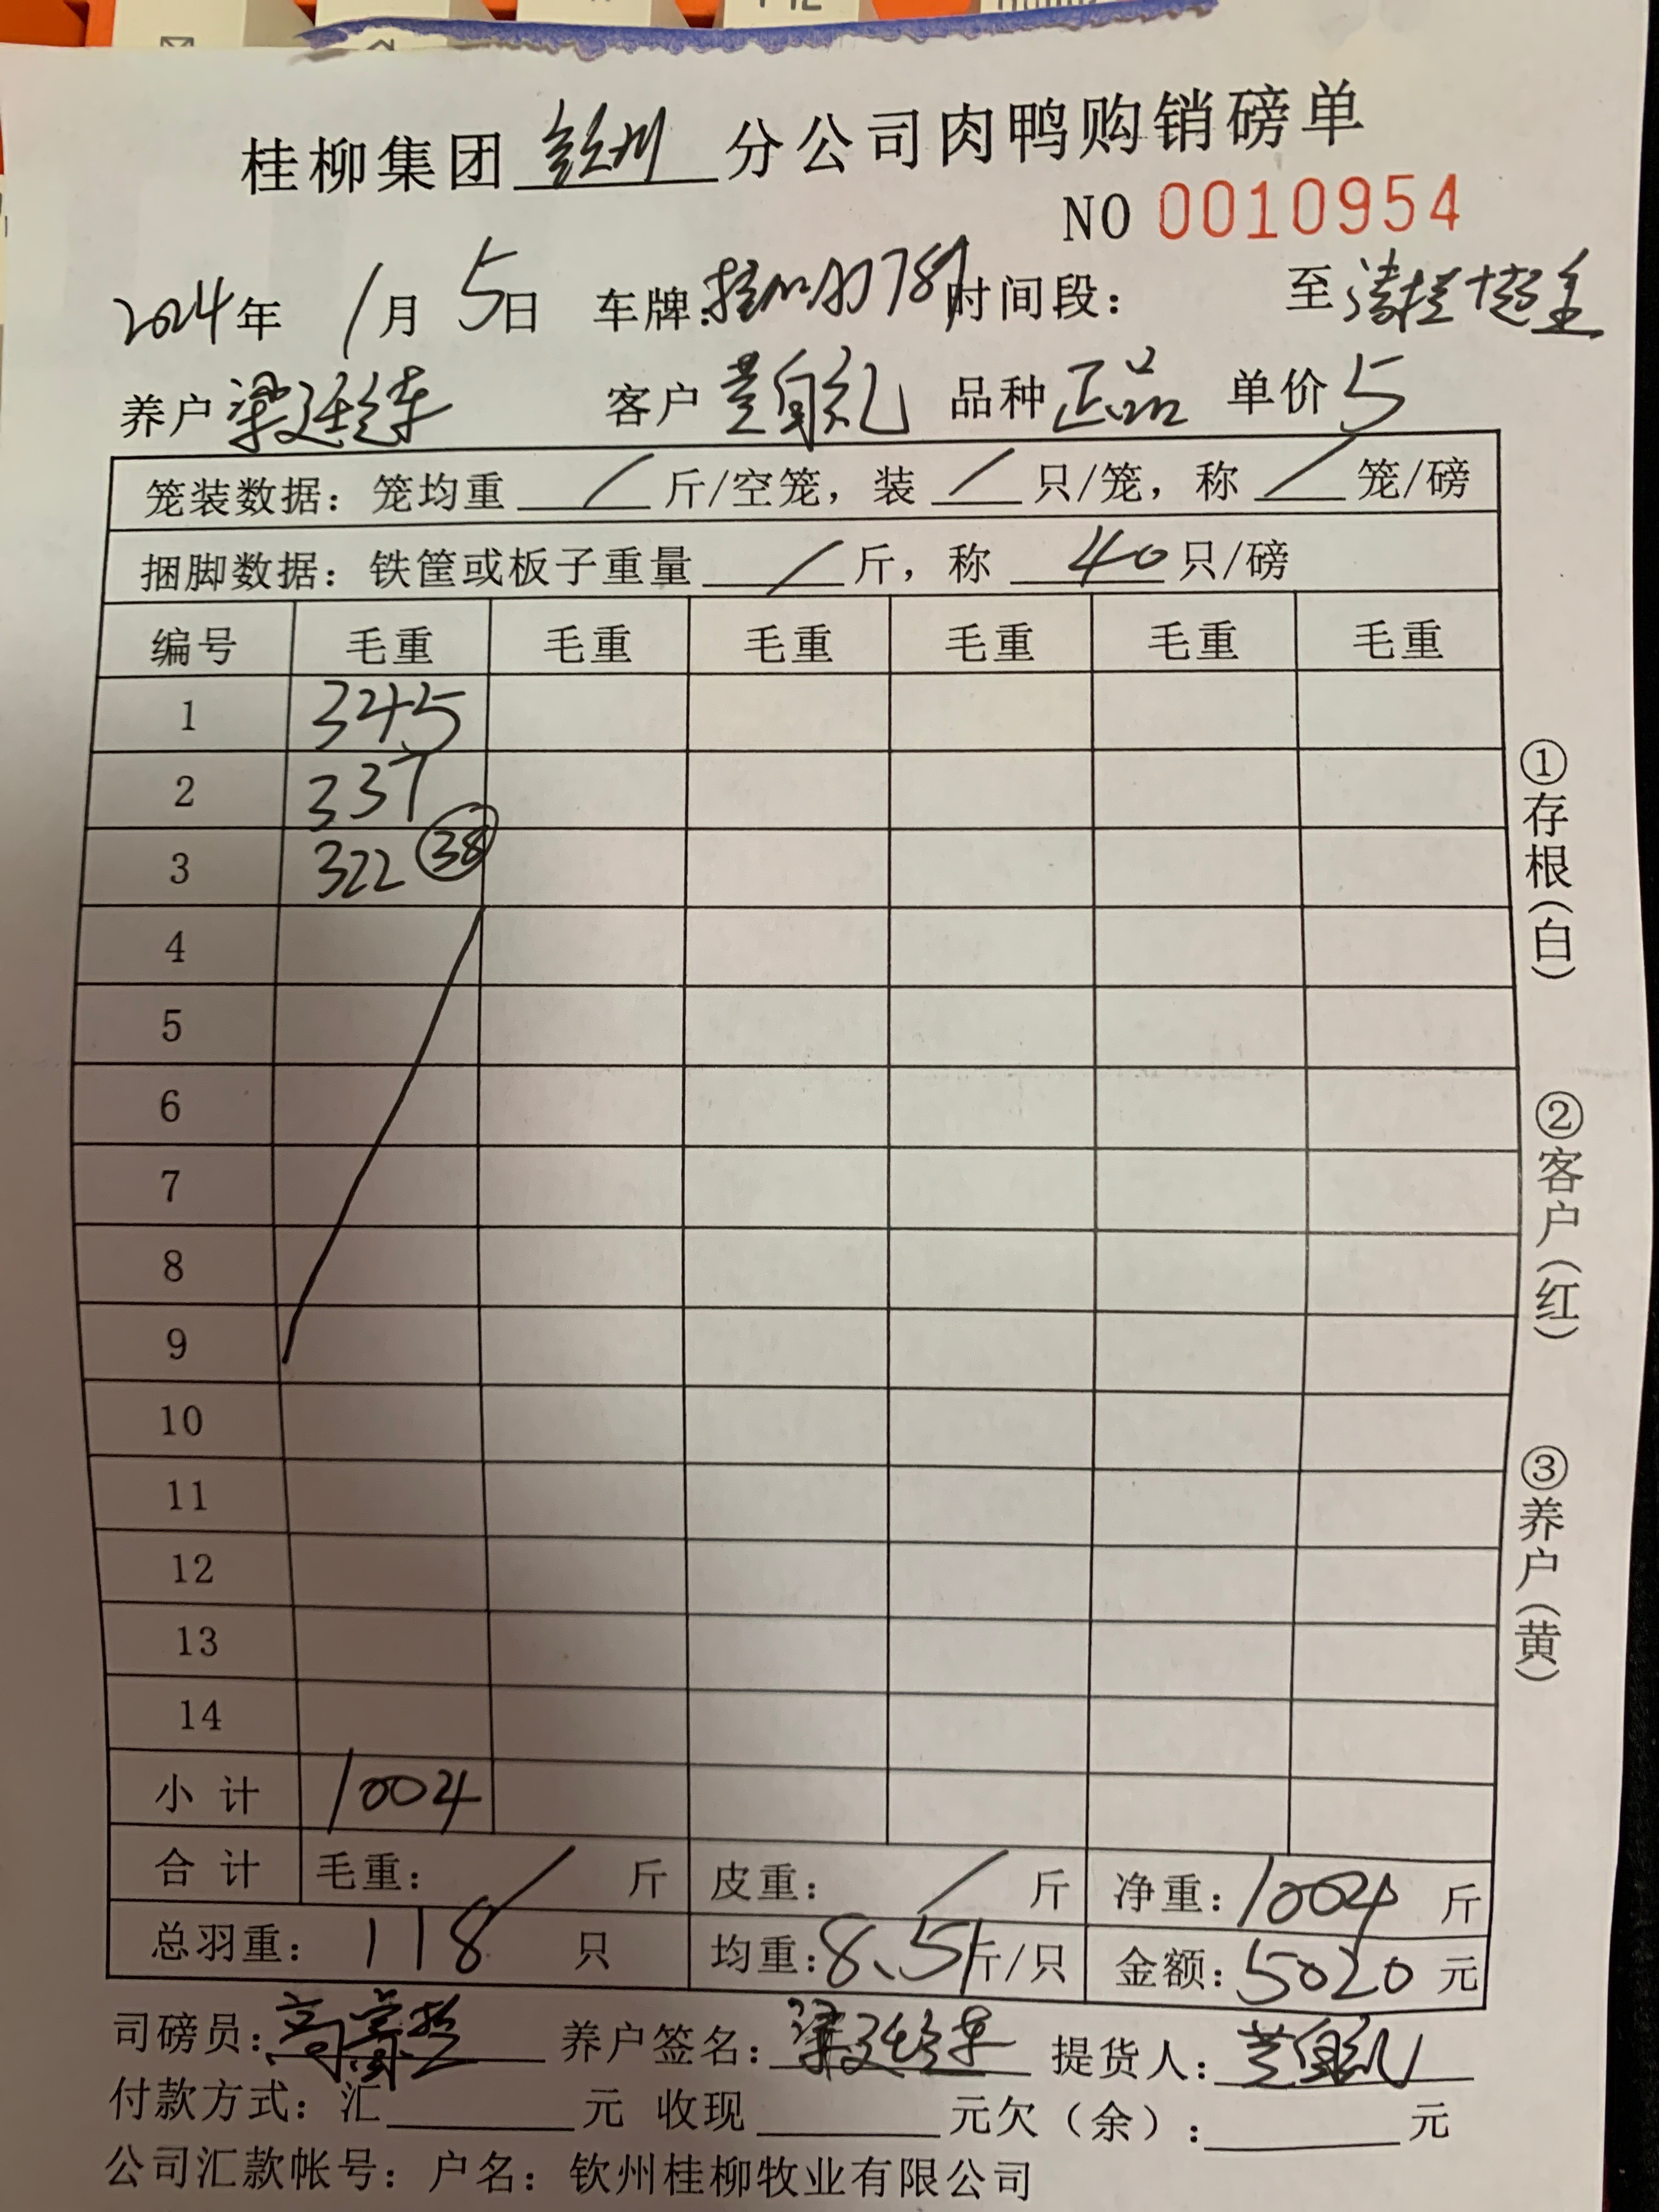 桂柳集团钦州分公司肉鸭购销磅单
NO 0010954
2024年 1月 5日 车牌: 时间段: 至
养户 客户 黄自礼 品种 正品 单价 5
笼装数据: 笼均重 / 斤/空笼, 装 / 只/笼, 称 / 笼/磅
捆脚数据: 铁筐或板子重量 / 斤, 称 40 只/磅
编号 毛重 毛重 毛重 毛重 毛重 毛重
1 345
2 337
3 322 38
4
5
6
7
8
9
10
11
12
13
14
小计 1004
合计 毛重: / 斤 皮重: / 斤 净重: 1004 斤
总羽重: 118 只 均重: 8.51 斤/只 金额: 5020 元
司磅员: 养户签名: 提货人: 黄自礼
付款方式: 汇 元 收现 元欠(余): 元
公司汇款帐号: 户名: 钦州桂柳牧业有限公司
①存根(白)
②客户(红)
③养户(黄)